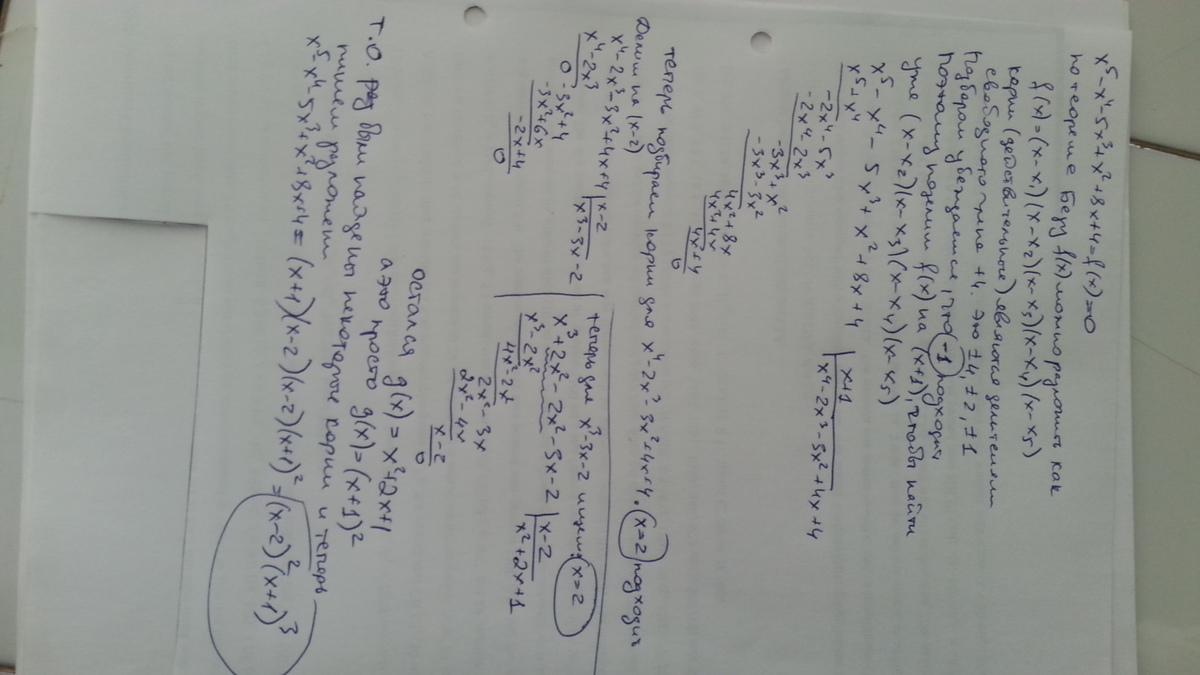 x⁵-x⁴-5x³+x²+8x+4=f(x)=0
по теореме Безу f(x) можно разложить как
f(x)=(x-x₁)(x-x₂)(x-x₃)(x-x₄)(x-x₅)
корни (действительные) являются делителями
свободного члена +4. это ±4, ±2, ±1
Подбором убеждаемся, что -1 подходит
Поэтому поделим f(x) на (x+1), чтобы найти
уже (x-x₂)(x-x₃)(x-x₄)(x-x₅)
x⁵-x⁴-5x³+x²+8x+4 | x+1
x⁵+x⁴ | x⁴-2x³-3x²+4x+4
-2x⁴-5x³
-2x⁴-2x³
-3x³+x²
-3x³-3x²
4x²+8x
4x²+4x
4x+4
0
теперь подбираем корни для x⁴-2x³-3x²+4x+4. x=2 подходит
Делим на (x-2)
x⁴-2x³-3x²+4x+4 | x-2
x⁴-2x³ | x³-3x-2
0 -3x²+4
-3x²+6x
-2x+4
0
теперь для x³-3x-2 ищем x=2
x³+2x²-2x²-3x-2 | x-2
x³-2x² | x²+2x+1
4x²-2x²
2x²-3x
2x²-4x
x-2
0
остался g(x)=x²+2x+1
а это просто g(x)=(x+1)²
Т.О. были найдены некоторые корни и теперь
пишем разложение
x⁵-x⁴-5x³+x²+8x+4=(x+1)(x-2)(x-2)(x+1)²=(x-2)²(x+1)³